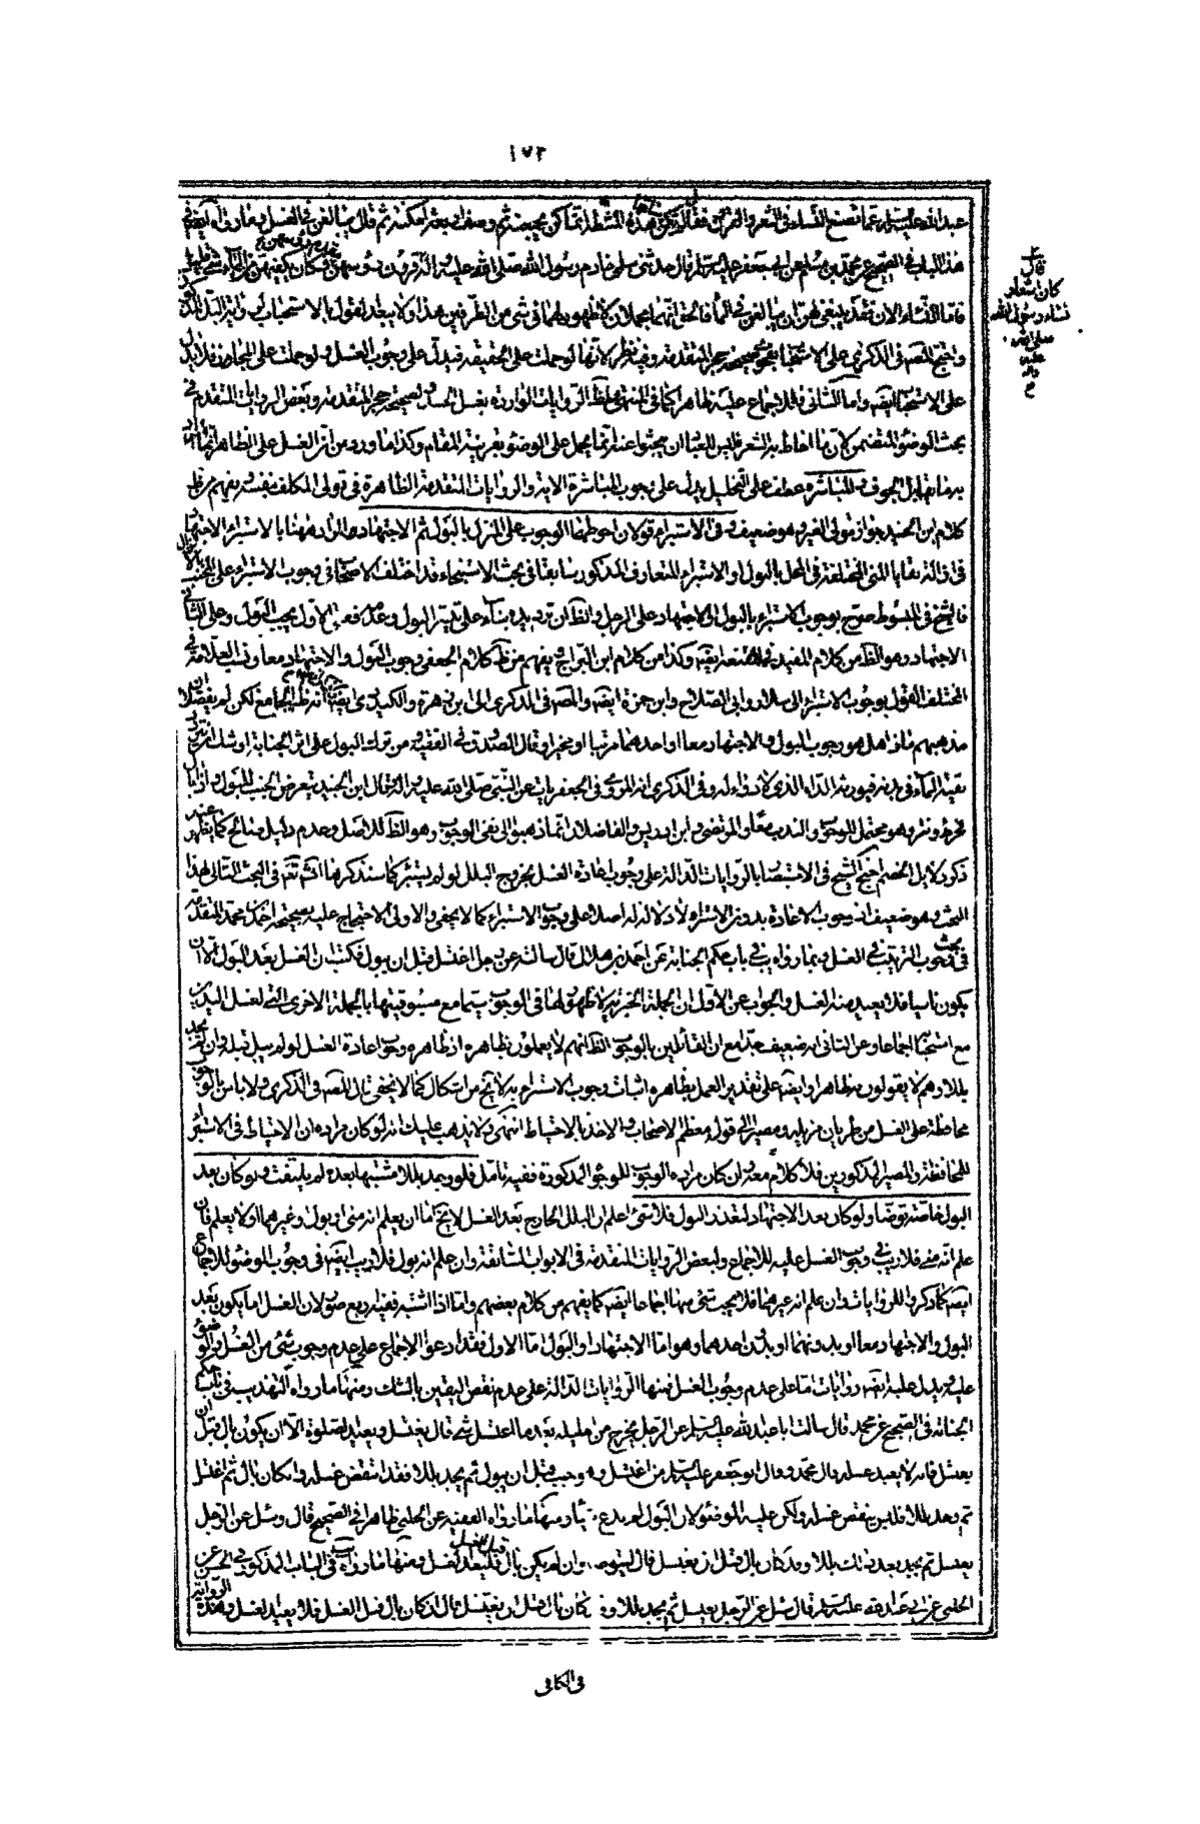 ١٧٣
عبد الله عليه السلام عما تصنع النساء فى الشعر والقرون فقال لم تكن هذه المشطة انما كن يجمعنه ثم وصف اربعة امكنة ثم قال يبالغن فى الغسل وبما رواه ايضا فى
هذا الباب فى الصحيح عن محمد بن مسلم عن ابى جعفر عليه السلام قال حدثتنى سلمى خادم رسول الله صلى الله عليه وآله قرون رؤسهن فكان يكفيهن من الماء شئ قليل
فاما النساء الان فقد ينبغى لهن ان يبالغن فى الماء
واحتج المصه فى الذكرى على الاستحباب بصحيحة حجر المتقدمة وفيه نظر لانها لو حملت على الحقيقة فيدل على وجوب الغسل ولو حملت على المجاز فلا يدل
على الاستحباب ايضه واما الثانى فللاجماع عليه ظاهرا كما فى المنتهى الروايات الواردة بغسل الجسد لصحيحة حجر المتقدمة وبعض الروايات المتقدمة فى
بحث الوضوء المتضمن لان ما احاط به الشعر فليس للعباد ان يبحثوا عنه انما يحمل على الوضوء بقرينة المقام وكذا ما ورد من ان الغسل على الظاهر
به ما يقابل الجوف والمباشرة عطف على التخليل يدل على وجوب المباشرة الاية والروايات المتقدمة الظاهرة فى تولى المكلف بنفسه ويفهم من
كلام ابن الجنيد جواز تولى الغير وهو ضعيف وفى الاستبراء قولان احوطهما الوجوب على المنزل بالبول ثم الاجتهاد والمراد ههنا بالاستبراء الاجتهاد
فى ازالة بقايا المنى المتخلفة فى المحل بالبول او الاستبراء المتعارف المذكور سابقا فى بحث الاستنجاء وقد اختلف الاصحاب فى وجوب الاستبراء على المجنب
فالشيخ فى المبسوط صرح بوجوب الاستبراء بالبول او الاجتهاد على الرجل والظ ان ترديده بناء على تيسر البول وعدمه فعلى الاول يجب البول وعلى الثانى
الاجتهاد وهو الظ من كلام المفيد فى المقنعة ايضه وكذا من كلام ابن البراج ويفهم من ظ كلام الجعفى وجوب البول والاجتهاد معا ونسب العلامة فى
المختلف القول بوجوب الاستبراء الى سلار وابى الصلاح وابن حمزة ايضه والمصه فى الذكرى الى ابن زهرة والكيدرى ايضه انه ظ الجامع لكن لم يفصلا
مذهبهم فانه هل هو وجوب البول والاجتهاد معا او احدهما مرتبا او مخيرا وقال الصدوق فى الفقيه من ترك البول على اثر الجنابة اوشك ان
بقية الماء فى بدنه فيورثه الداء الذى لا دواء له وفى الذكرى انه المروى فى الجعفريات عن النبى صلى الله عليه وآله قال ابن الجنيد يتعرض الجنب للبول
وهو محتمل للوجوب والندب معا والمرتضى وابن ادريس والفاضلان انما ذهبوا الى نفى الوجوب وهو الظ للاصل وعدم دليل صالح كما يظهر عند
ذكر دلايل الخصم احتج الشيخ فى الاستبصار بالروايات الدالة على وجوب اعادة الغسل بخروج البلل لو لم يستبرء كما سنذكرها انشاء الله تعه فى البحث التالى لهذا
البحث وهو ضعيف اذ وجوب الاعادة بدون الاستبراء لا دلالة له اصلا على وجوب الاستبراء كما لا يخفى والاولى الاحتجاج عليه بصحيحة احمد بن محمد المتقدمة
فى بحث وجوب الترتيب فى الغسل وبما رواه يب فى باب حكم الجنابة عن احمد بن هلال قال سالته عن رجل اغتسل قبل ان يبول فكتب ان الغسل بعد البول الا ان
يكون ناسيا فلا يعيد منه الغسل والجواب عن الاول ان الجملة الخبرية لا ظهور لها فى الوجوب سيما مع مسبوقيتها بالجملة الاخرى التى لغسل اليدين
مع استحبابه اجماعا وعن الثانى انه ضعيف جدا مع ان القائلين بالوجوب الظ انهم لا يعملون بظاهره اذ ظاهره وجوب اعادة الغسل لو لم يبل قبله وان لم يجد
بللا وهم لا يقولون بظاهره وايضه على تقدير العمل بظاهره اثبات وجوب الاستبراء به لا يخ من اشكال كما لا يخفى قال المصه فى الذكرى ولا باس بالوجوب
محافظة على الغسل من طريان مزيله ومصيرا الى قول معظم الاصحاب والاخذ بالاحتياط انتهى ولا يذهب عليك انه لو كان مراده ان الاحتياط فى الاستبراء
للمحافظة والمصير المذكورين فلا كلام معه وان كان مراده الوجوب للوجوه المذكورة ففيه تامل فلو وجد بللا مشتبها بعده لم يلتفت ولو كان بعد
البول خاصة توضا ولو كان بعد الاجتهاد لتعذر البول فلا شئ اعلم ان البلل الخارج بعد الغسل لا يخ اما ان يعلم انه منى او بول او غيرهما او لا يعلم فان
علم انه منى فلا ريب فى وجوب الغسل عليه للاجماع ولبعض الروايات المتقدمة فى الابواب السالفة وان علم انه بول فلا ريب ايضه فى وجوب الوضوء للاجماع
ايضه كما ذكر وللروايات وان علم انه غيرهما فلا يجب شئ منهما اجماعا ايضه كما يفهم من كلام بعضهم واما اذا اشتبه ففيه اربع صور لان الغسل اما يكون بعد
البول والاجتهاد معا او بدونهما او بدون احدهما وهو اما الاجتهاد او البول اما الاول فقد ادعى الاجماع على عدم وجوب شئ من الغسل والوضوء
عليه ويدل عليه ايضه روايات اما على عدم وجوب الغسل فمنها الروايات الدالة على عدم نقض اليقين بالشك ومنها ما رواه التهذيب فى باب حكم
الجنابة فى الصحيح عن محمد قال سالت ابا عبد الله عليه السلام عن الرجل يخرج من احليله بعد ما اغتسل شئ قال يغتسل ويعيد الصلوة الا ان يكون بال قبل ان
يغتسل فانه لا يعيد غسله قال محمد وقال ابو جعفر عليه السلام من اغتسل وهو جنب قبل ان يبول ثم يجد بللا فقد انتقض غسله وان كان بال ثم اغتسل
ثم وجد بللا فليس ينقض غسله ولكن عليه الوضوء لان البول لم يدع شيئا ومنها ما رواه الفقيه عن الحلبى ظاهرا فى الصحيح قال وسئل عن الرجل
يغتسل ثم يجد بعد ذلك بللا وقد كان بال قبل ان يغتسل قال ليتوضا وان لم يكن بال قبل الغسل فليعد الغسل ومنها ما رواه يب فى الباب المذكور فى الحسن عن
الحلبى عن ابى عبد الله عليه السلام قال سئل عن الرجل يغتسل ثم يجد بللا وقد كان بال قبل ان يغتسل قال ان كان بال قبل الغسل فلا يعيد الغسل وهذه الرواية
قال
كان اشعار
نساء رسول الله
صلى الله
عليه
وآله
فى الكافى